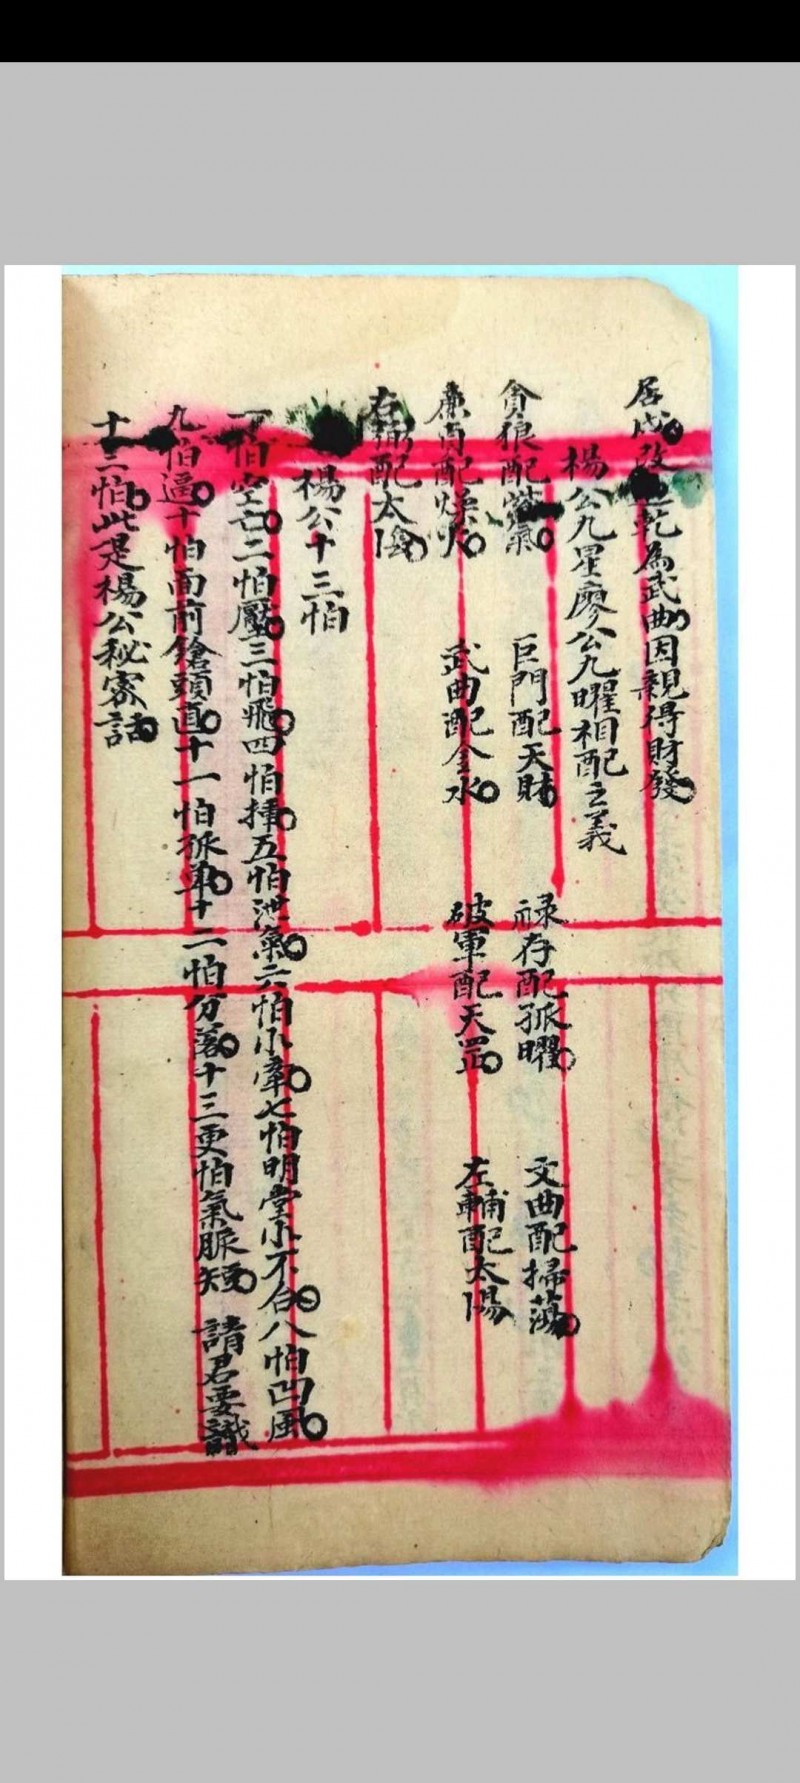 居戌改乾為武曲因親得財發
楊公九星廖公九曜相配之義
貪狼配紫氣 巨門配天財 祿存配孤曜 文曲配掃蕩
廉貞配燥火 武曲配金水 破軍配天罡 左輔配太陽
右弼配太陰
楊公十三怕
一怕空亡二怕壓三怕飛四怕捶五怕泄氣六怕小牽七怕明堂小不合八怕凹風
九怕逼十怕面前鎗頭直十一怕孤單十二怕分落十三更怕氣脈短 請君要識
十三怕此是楊公秘密話